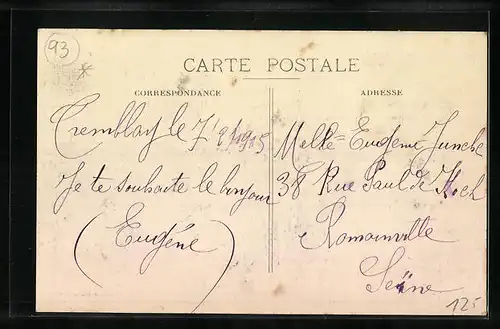 93
*
CARTE POSTALE
CORRESPONDANCE
ADRESSE
Tremblay le 7 1905
Je te souhaite le bonjour
(Eugéne)
Melle Eugenie
38 Rue Paul de Kock
Romainville
Seine
125